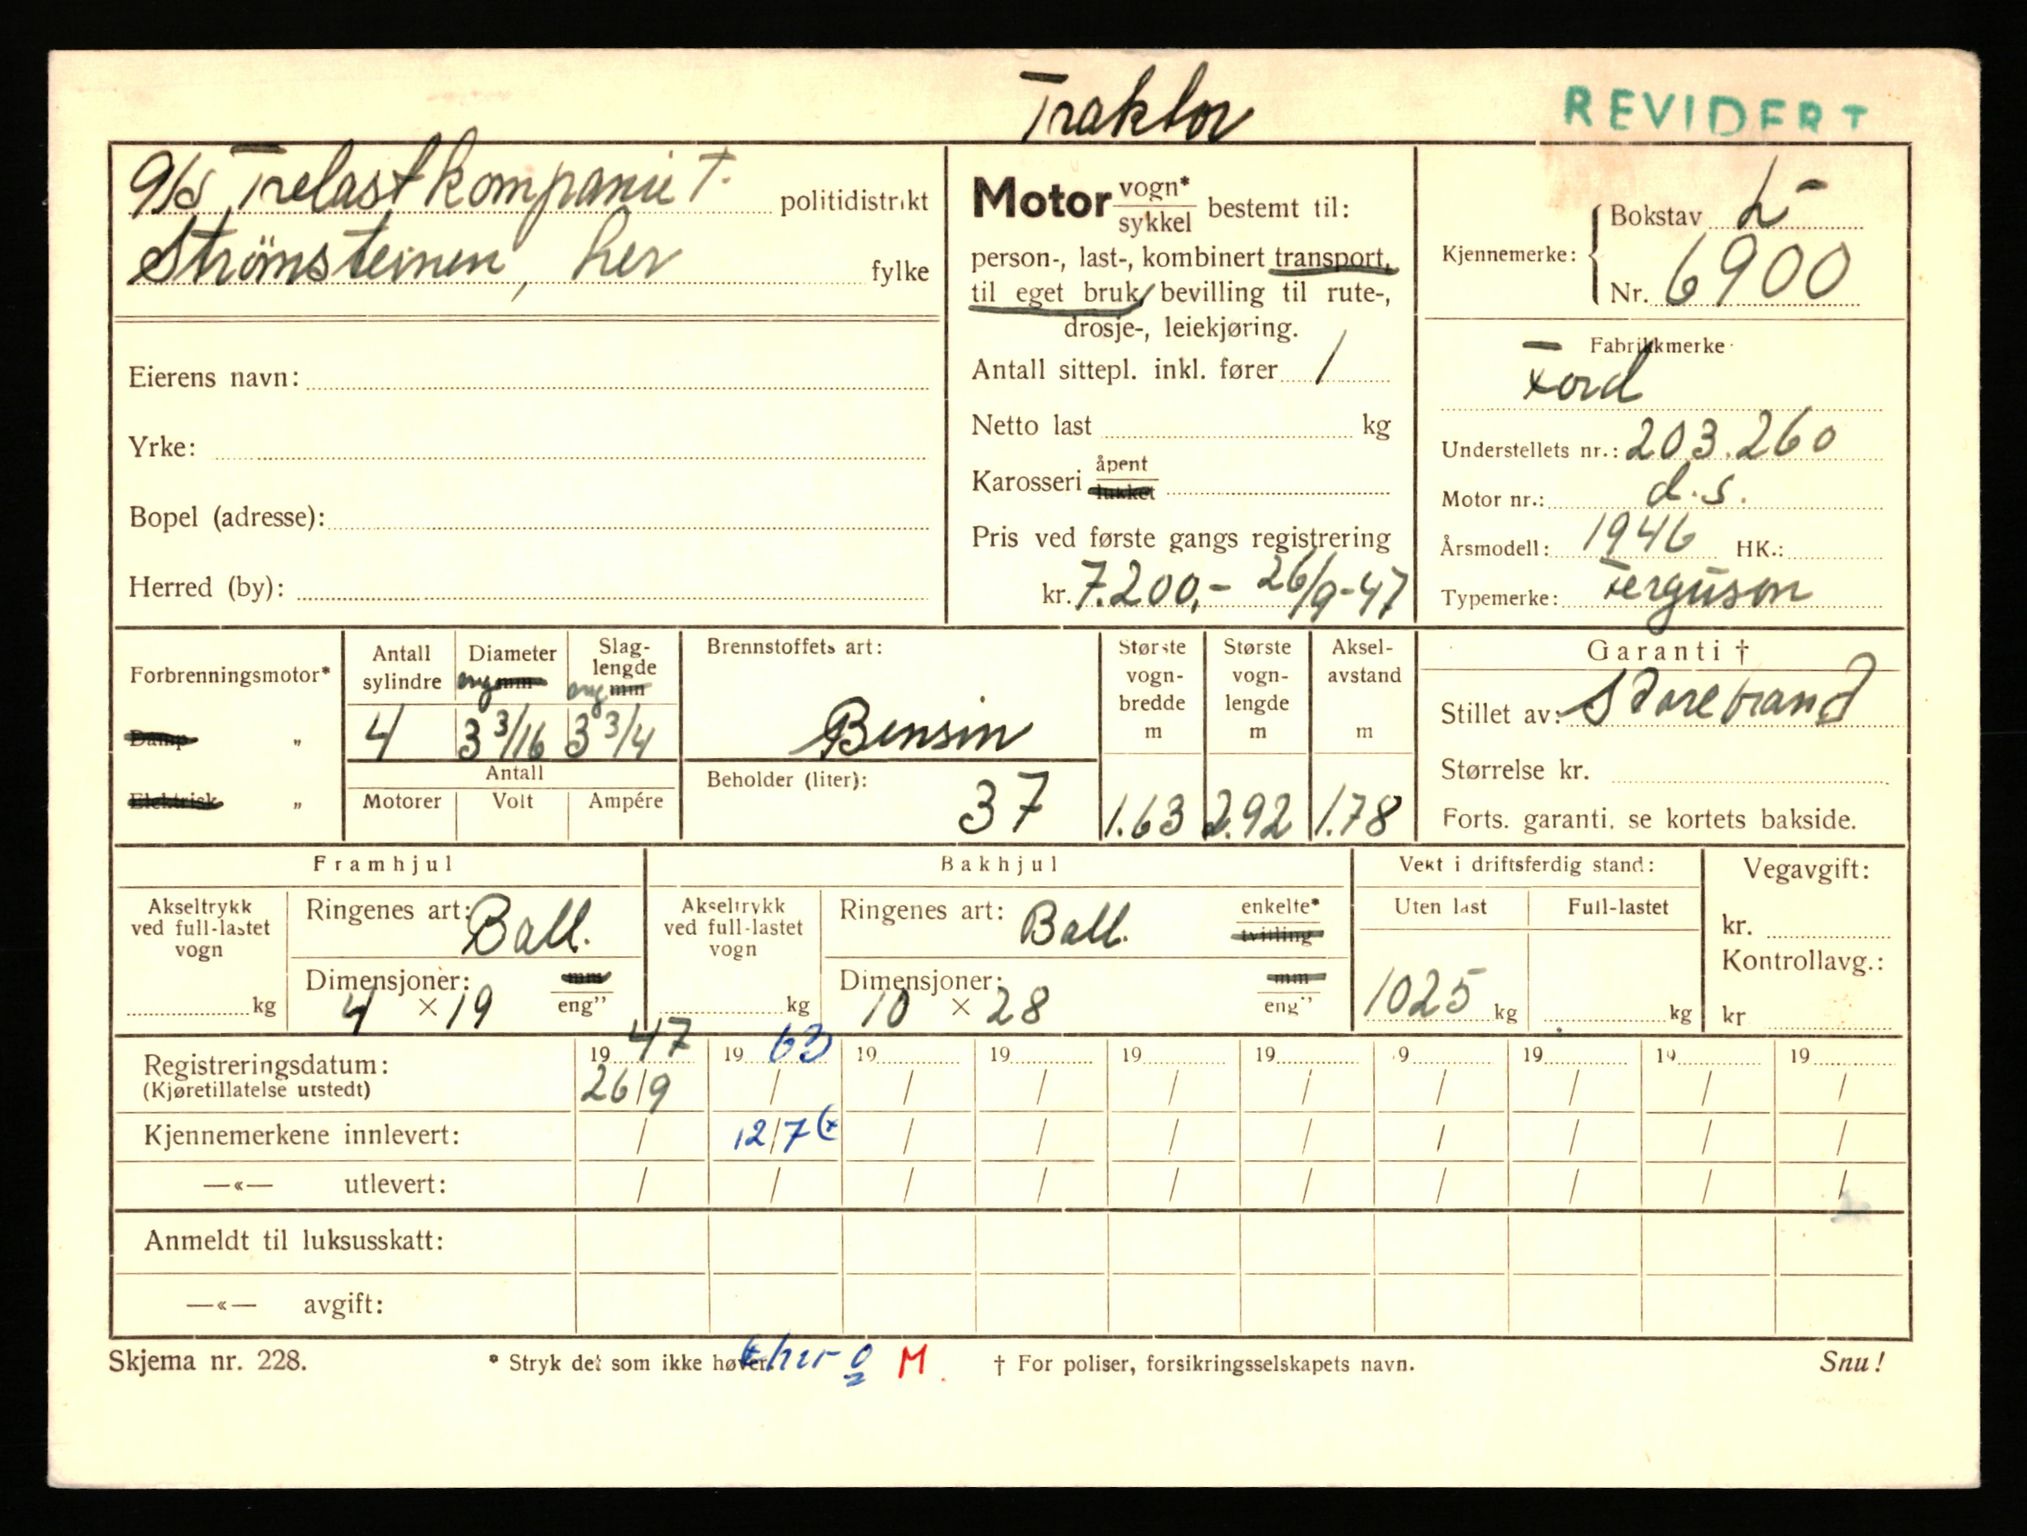 Traktor
REVIDERT
A/S Trelastkompaniet. politidistrikt
Strömsteinen, her fylke
Eierens navn:
Yrke:
Bopel (adresse):
Herred (by):
Motor vogn* / sykkel bestemt til:
person-, last-, kombinert transport,
til eget bruk, bevilling til rute-,
drosje-, leiekjøring.
Antall sittepl. inkl. fører 1
Netto last kg
Karosseri åpent / lukket
Pris ved første gangs registrering
kr. 7.200,- 26/9-47
Kjennemerke: Bokstav L-
Nr. 6900
Fabrikkmerke
Ford
Understellets nr.: 203.260
Motor nr.: d.s.
Årsmodell: 1946 HK.:
Typemerke: Ferguson
Forbrenningsmotor*
Damp "
Elektrisk "
Antall sylindre
4
Diameter eng mm
3 3/16
Slag-
lengde
eng mm
3 3/4
Antall
Motorer Volt Ampére
Brennstoffets art:
Bensin
Beholder (liter):
37
Største vogn-bredde m
1.63
Største vogn-lengde m
2.92
Aksel-avstand m
1.78
Garanti †
Stillet av: Storebrand
Størrelse kr.
Forts. garanti. se kortets bakside.
Framhjul
Akseltrykk
ved full-lastet
vogn
kg
Ringenes art: Ball.
Dimensjoner: mm
4 × 19 eng"
Bakhjul
Akseltrykk
ved full-lastet
vogn
kg
Ringenes art: Ball. enkelte*
tvilling
Dimensjoner: mm
10 × 28 eng"
Vekt i driftsferdig stand:
Uten last Full-lastet
1025 kg kg
Vegavgift:
kr.
Kontrollavg.:
kr
Registreringsdatum: 1947 1963 19 19 19 19 19 19 19 19
(Kjøretillatelse utstedt) 26/9 / / / / / / / / /
Kjennemerkene innlevert: / 12/7 (x / / / / / / / /
—«— utlevert: / / / / / / / / / /
Anmeldt til luksusskatt:
—«— avgift:
Skjema nr. 228. * Stryk det som ikke høver. M † For poliser, forsikringsselskapets navn. Snu!